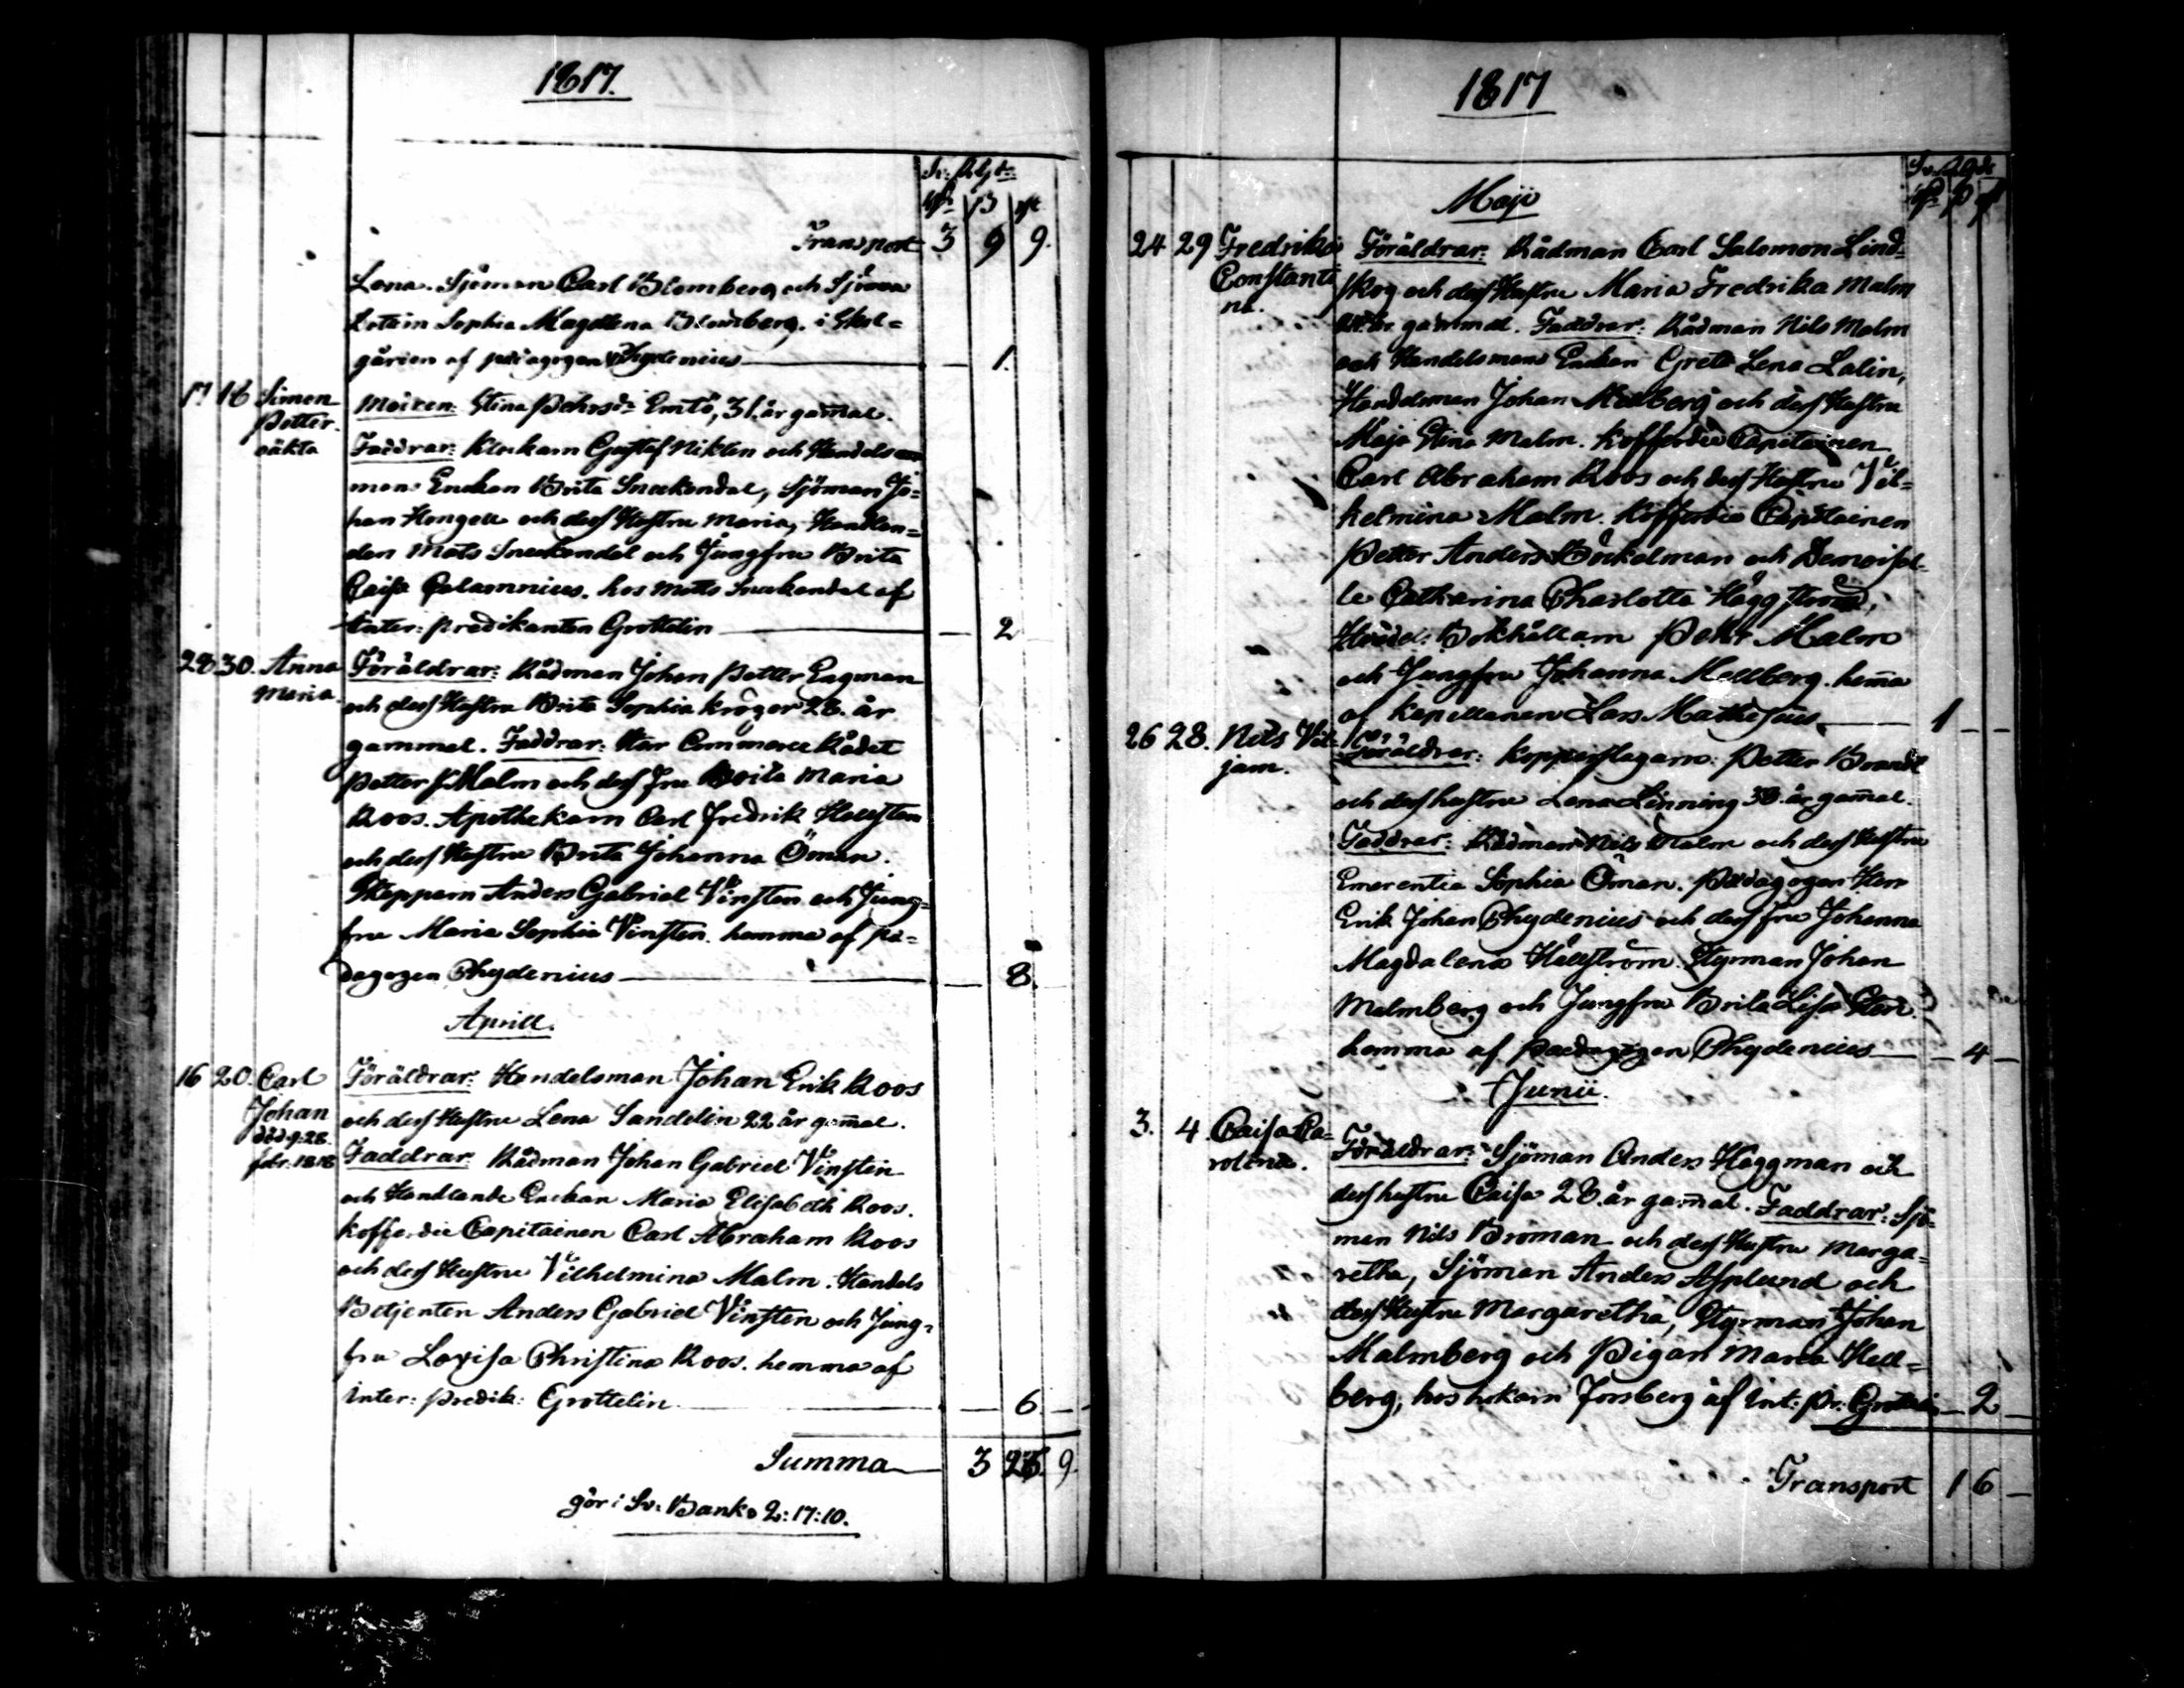 1817.
Sv: Rgt:
Transport 3 9 9.
Lena. Sjöman Carl Blomberg och Sjöman
Sophia Magdlena Blomberg. i Skol=
gården af pædagogen Chydenius 1.
17 18 Simon Petter oäkta
Moiren: Stina Pehrsdr Emtö, 31. år gam̄al.
Faddrar: Klockarn Gustaf Niklen och Handels
mans Enckan Brita Sneckendal, Sjöman Jo=
han Hongell och dess Hustru Maria, Handlan=
den Mats Sneckendal och Jungfru Brita
Caisa Calamnius. hos Matts Sneckendal af
Inter: predikanten Grottelin 2
28 30. Anna Maria.
Föräldrar: Rådman Johan Petter Engman
och dess Hustru Brita Sophia Kröger 28. år
gammal. Faddrar: Herr Commerce Rådet
Petter J. Malm och dess Fru Brita Maria
Roos. Apothekarn Carl Fredrik Hellsten
och dess Hustru Brita Johanna Öman.
Skepparn Anders Gabriel Vinsten och Jung=
fru Maria Sophia Vinsten. hemma af pæ=
dagogen Chydenius 8.
Aprill.
16 20. Carl Johan död d: 28. febr: 1818
Föräldrar: Handelsman Johan Erik Roos
och dess Hustru Lena Sandelin 22 år gam̄al.
Faddrar: Rådman Johan Gabriel Vinsten
och Handlande Enckan Maria Elisabeth Roos.
Kofferdie Capitainen Carl Abraham Roos
och dess Hustru Vilhelmina Malm. Handels
Betjenten Anders Gabriel Vinsten och Jung=
fru Lovisa Christina Roos. hemma af
Inter: predik: Grottelin 6.
Summa 3 26. 9.
gör i Sv: Banko 2: 17: 10.
1817
Maji
24 29 Fredrika Constanti na.
Föräldrar: Rådman Carl Salomon Lind=
skog och dess Hustru Maria Fredrika Malm
år gammal. Faddrar: Rådman Nils Malm
och Handelsmans Enckan Greta Lena Lalin,
Handelsman Johan Mellberg och dess Hustru
Maja Stina Malm. Kofferdie Capitainen
Carl Abraham Roos och dess Hustru Vil=
helmina Malm. Kofferdie Capitainen
Petter Anders Böckelman och Demoisel=
le Catharina Charlotta Häggström,
Handels Bokhållarn Pehr Malm
och Jungfru Johanna Mellberg. hem̄a
af Kapellanen Lars Mathesius 1 – –
26 28. Nils Vil jam.
Föräldrar: Kopparslagarn: Petter Brandt
och dess hustru Lena Linning 38. år gam̄al.
Faddrar: Rådman Nils Malm och dess Hustru
Emerentia Sophia Öman. Pædagogen Herr
Erik Johan Chydenius och dess fru Johanna
Magdalena Hällström. Styrman Johan
Malmberg och Jungfru Brita Lisa
hemma af Pædagogen Chydenius – 4 –
Junii.
3. 4. Caisa Ca= rolina.
Föräldrar: Sjöman Anders Häggman och
dess hustru Caisa 28. år gam̄al. Faddrar: Sjö=
man Nils Broman och dess Hustru Marga=
retha, Sjöman Anders Asplund och
dess Hustru Margaretha, Styrman Johan
Malmberg och Pigan Maria Hell=
berg, hos hokarn Forsberg af Int: Pr: Grottelin – 2 –
Transport 1 6 –